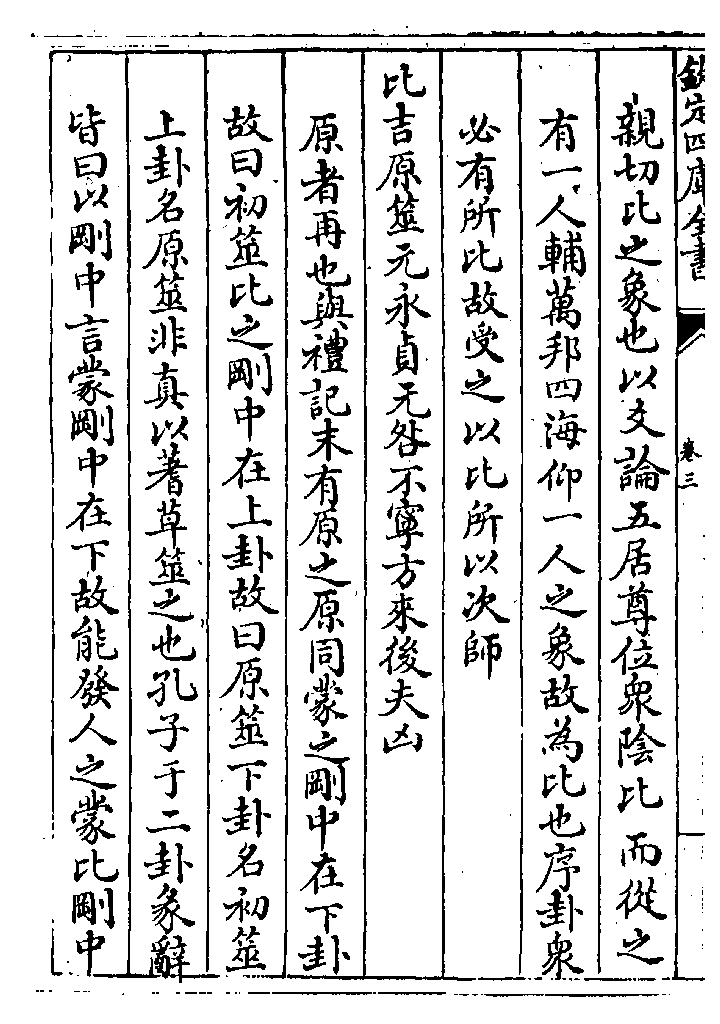 欽定四庫全書
卷三
親切比之象也以爻論五居尊位衆陰比而從之
有一人輔萬邦四海仰一人之象故為比也序卦衆
必有所比故受之以比所以次師
比吉原筮元永貞无咎不寧方來後夫凶
原者再也與禮記末有原之原同蒙之剛中在下卦
故曰初筮比之剛中在上卦故曰原筮下卦名初筮
上卦名原筮非真以蓍草筮之也孔子于二卦彖辭
皆曰以剛中言蒙剛中在下故能發人之蒙比剛中